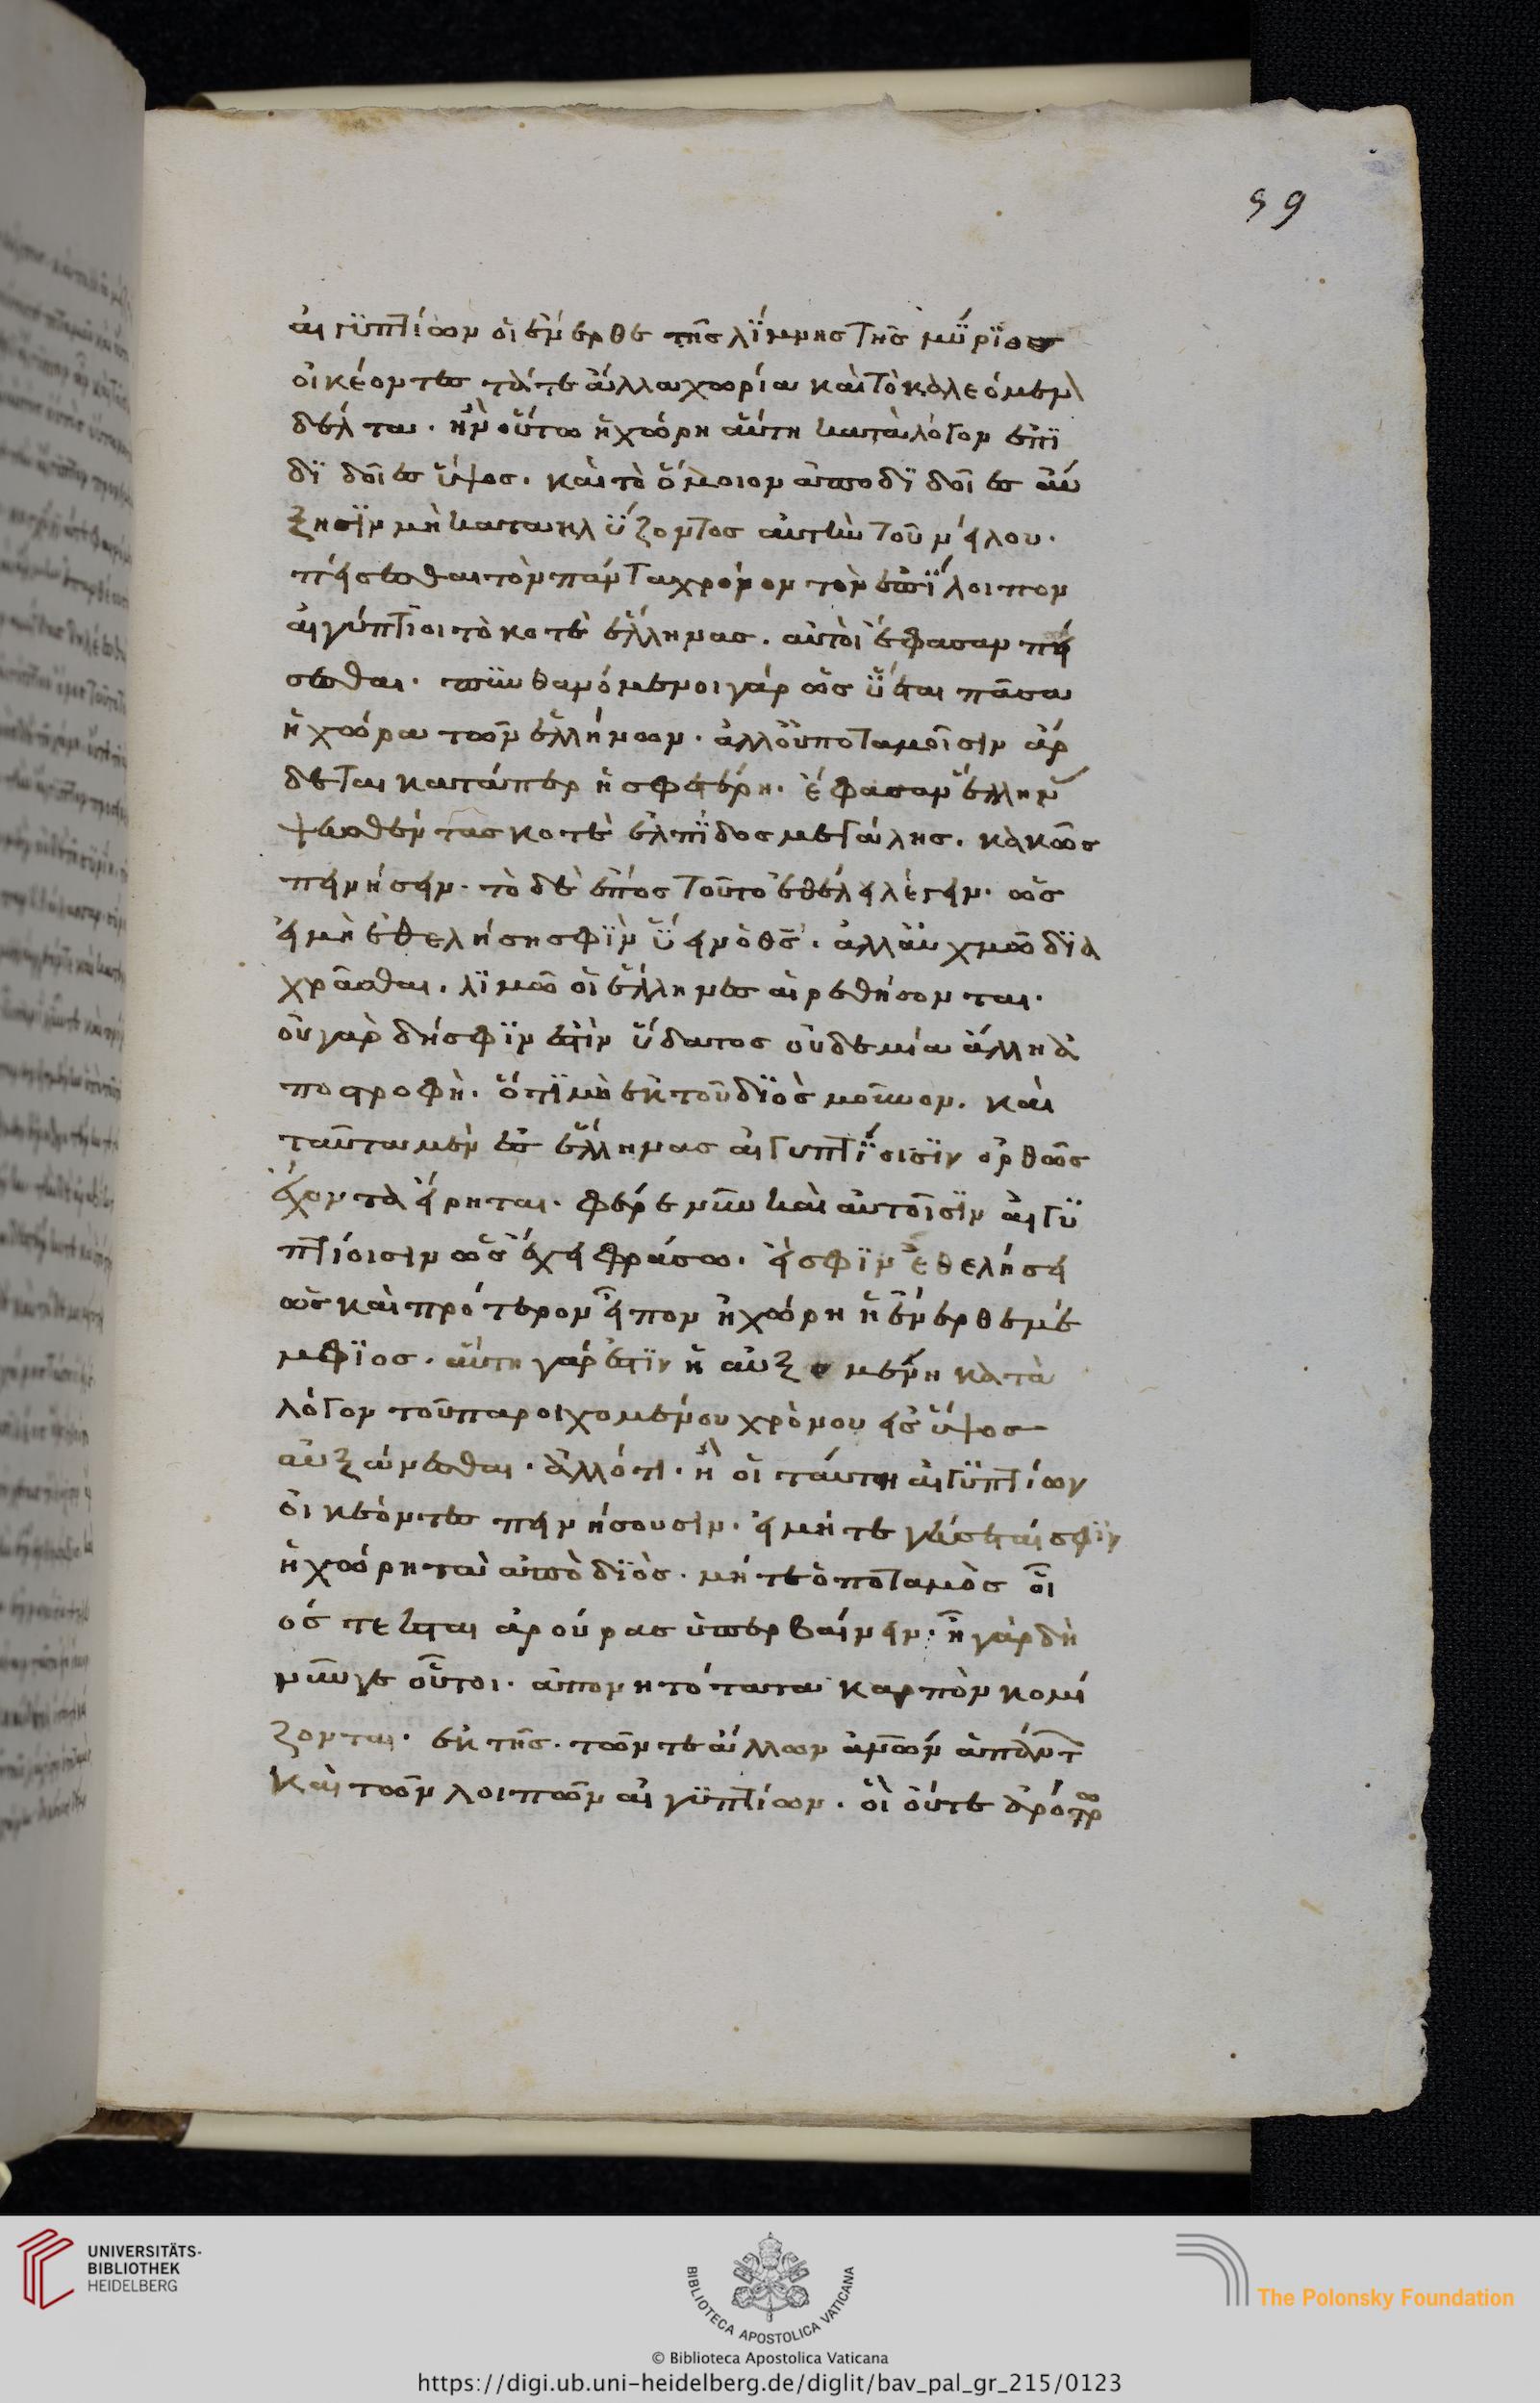 59
αἰγϋπτίων οἱ ἔνερθε τῆς λΐμνης τῆς μΰρϊος
οἰκέοντες τάτε ἄλλα χωρία καὶ τὸ καλεόμεν
δέλτα. ἢν οὕτω ἡ χώρη αὕτη κατὰ λόγον ἐπϊ
δϊδοῖ ἐς ὕψος. καὶ τὸ ὅμοιον ἀποδϊδοῖ ἐς αὔ
ξησϊν μὴ κατακλΰζοντος αὐτὴν τοῦ νείλου.
πείσεσθαι τὸν πάντα χρόνον τὸν ἐπΐλοιπον
αἰγύπτϊοι τὸ κοτὲ ἕλληνας. αὐτοὶ ἔφασαν πεί
σεσθαι. πϋνθανόμενοι γάρ ὡς ὕεται πᾶσα
ἡ χώρα τῶν ἑλλήνων. ἀλλ' οὐ ποταμοῖσιν ἄρ
δεται κατάπερ ἡ σφετέρη. ἔφασαν ἕλλην
ψευσθέντας κοτὲ ἐλπΐδος μεγάλης. κακῶς
πεινήσειν. τὸ δὲ ἔπος τοῦτο ἐθέλει λέγειν. ὡς
εἰ μὴ ἐθελήσῃ σφϊν ὕειν ὁ θς. ἀλλ' αὐχμῶ δϊα
χρᾶσθαι. λϊμῶ οἱ ἕλληνες αἱρεθήσονται.
οὐ γὰρ δή σφϊν ἐστὶν ὕδατος οὐδεμία ἄλλη ἀ
ποστροφὴ. ὅτϊ μὴ ἐκ τοῦ δϊὸς μοῦνον. καὶ
ταῦτα μὲν ἐς ἕλληνας αἰγυπτΐοισϊν ὀρθῶς
ἔχοντα εἴρηται. φέρε νῦν καὶ αὐτοῖσϊν αἰγϋ
πτίοισιν ὡς ἔχει φράσω. εἴ σφϊν ἐθελήσει
ὡς καὶ πρότερον εἶπον ἡ χώρη ἡ ἔνερθε μέ
μφϊος. αὕτη γάρ ἐστϊν ἡ αὐξομένη κατὰ
λόγον τοῦ παροιχομένου χρόνου εἰς ὕψος
αὐξάνεσθαι. ἄλλό τι. ἢ οἱ ταύτῃ αἰγϋπτίων
οἰκέοντες πεινήσουσιν. εἰ μήτε γε ὕσεταί σφϊν
ἡ χώρη τὰ ἀπὸ δϊὸς. μήτε ὁ ποταμὸς οἷ
ός τε ἔσται ἀρούρας ὑπερβαίνειν. ἦ γὰρ δὴ
νῦν γε οὗτοι. ἀπονητότατα καρπὸν κομί
ζονται. ἐκ τῆς. τῶν τε ἄλλων ἀνῶν ἁπάντ
καὶ τῶν λοιπῶν αἰγϋπτίων. οἳ οὔτε ἀρότρω
UNIVERSITÄTS-
BIBLIOTHEK
HEIDELBERG
BIBLIOTECA APOSTOLICA VATICANA
The Polonsky Foundation
© Biblioteca Apostolica Vaticana
https://digi.ub.uni-heidelberg.de/diglit/bav_pal_gr_215/0123